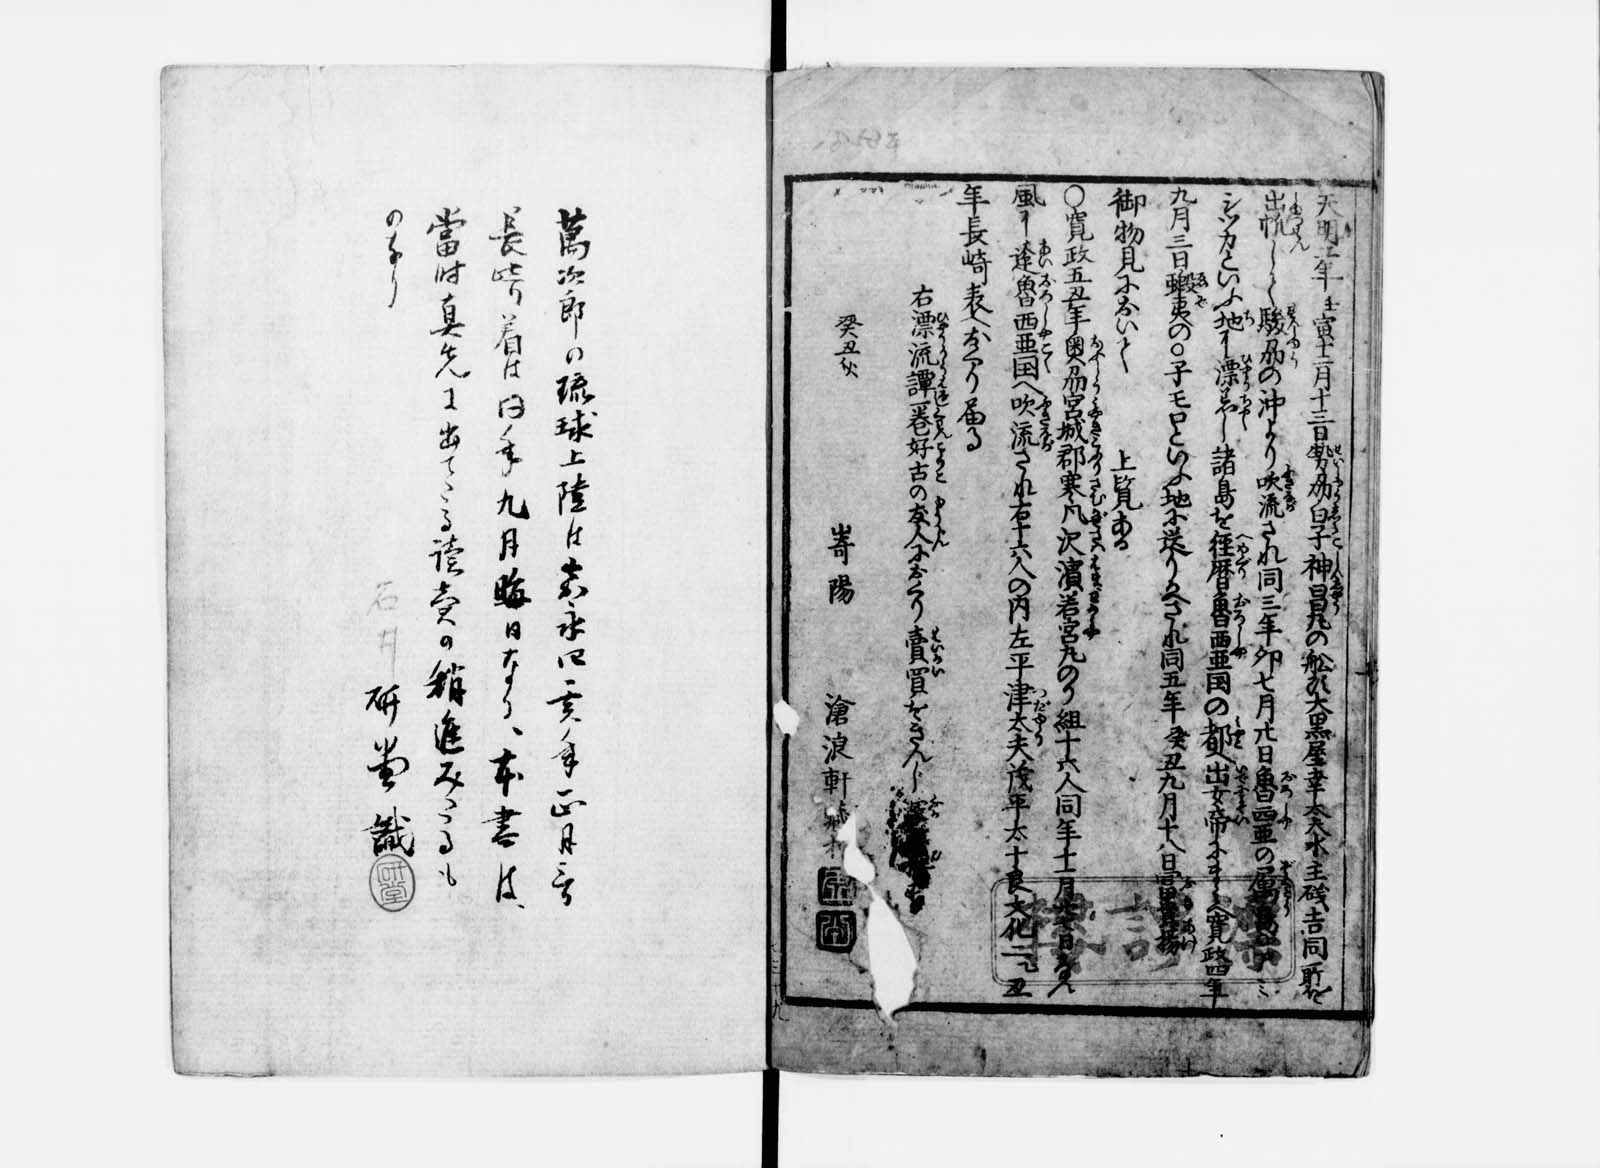 天明二年壬寅十二月十三日勢州白子神昌丸の舩頭大黒屋幸太夫水主磯吉同所を
出帆しして駿州の沖より吹流され同三年卯七月廿日魯西亜の属島アミ
シツカといふ地に漂着し諸島を径暦魯西亜国の都へ出女帝にまみへ寛政四年
九月三日蝦夷の子モロといふ地に送りかへされ同五年癸丑九月十八日
御物見において　上覧ある
○寛政五丑年奥州宮城郡寒風沢濱若宮丸のり組十六人同年十一月廿七日なん
風に逢魯西亜国へ吹流され右十六人の内左平津太夫茂平太十良文化二乙丑
年長崎表へおくり届る
右漂流譚一巻好古の友人におくり賣買をきんじ
癸丑秋
嵜陽　滄浪軒
萬次郎の琉球上陸は嘉永四亥年正月三日
長崎着は同年九月晦日なり、本書は、
當時真先に出てたる読売の稍進みたるも
のなり
石井
研堂識
研堂